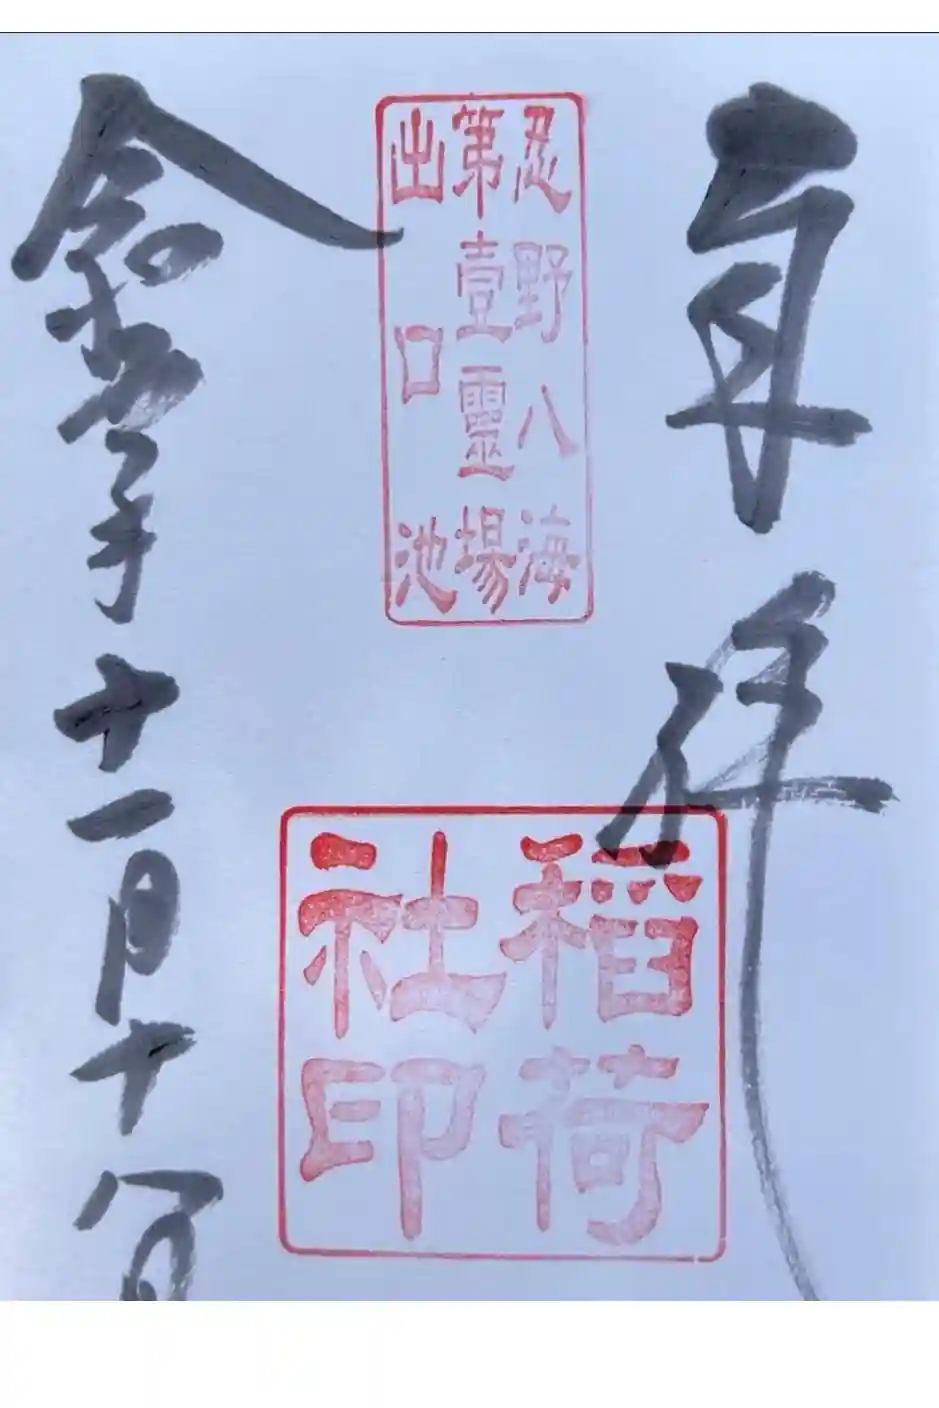 奉拝
忍野八海
第壹靈場
出口池
稲荷
社印
令和年十一月十八日